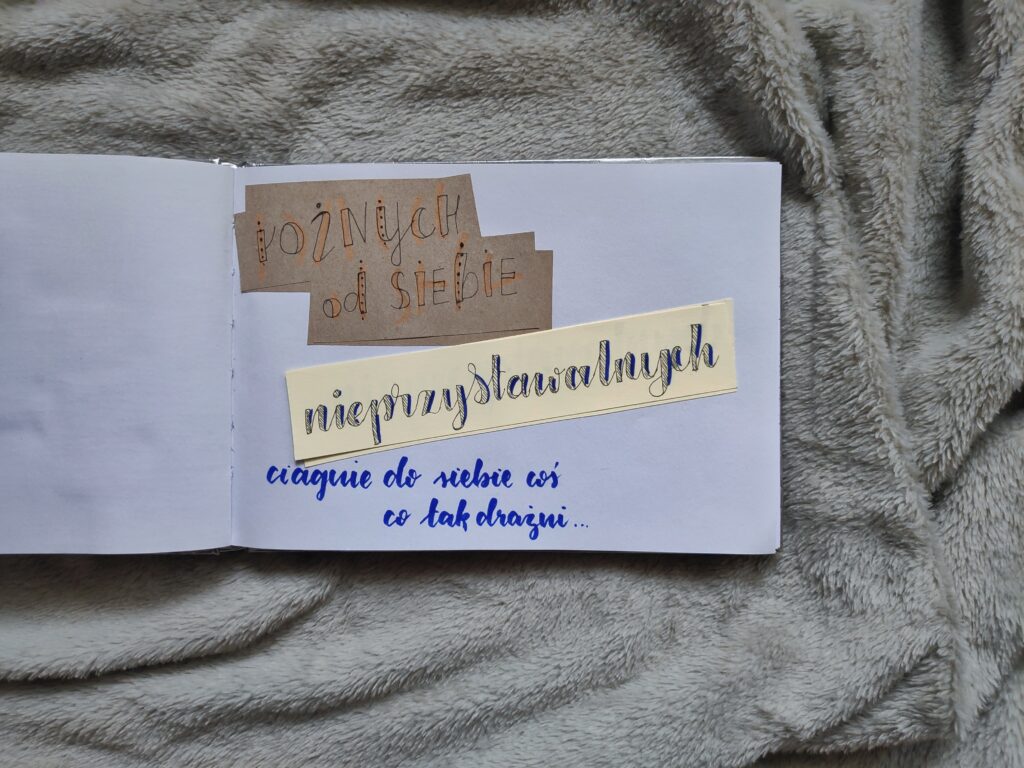 różnych
od siebie
nieprzystawalnych
ciągnie do siebie coś
co tak drażni...